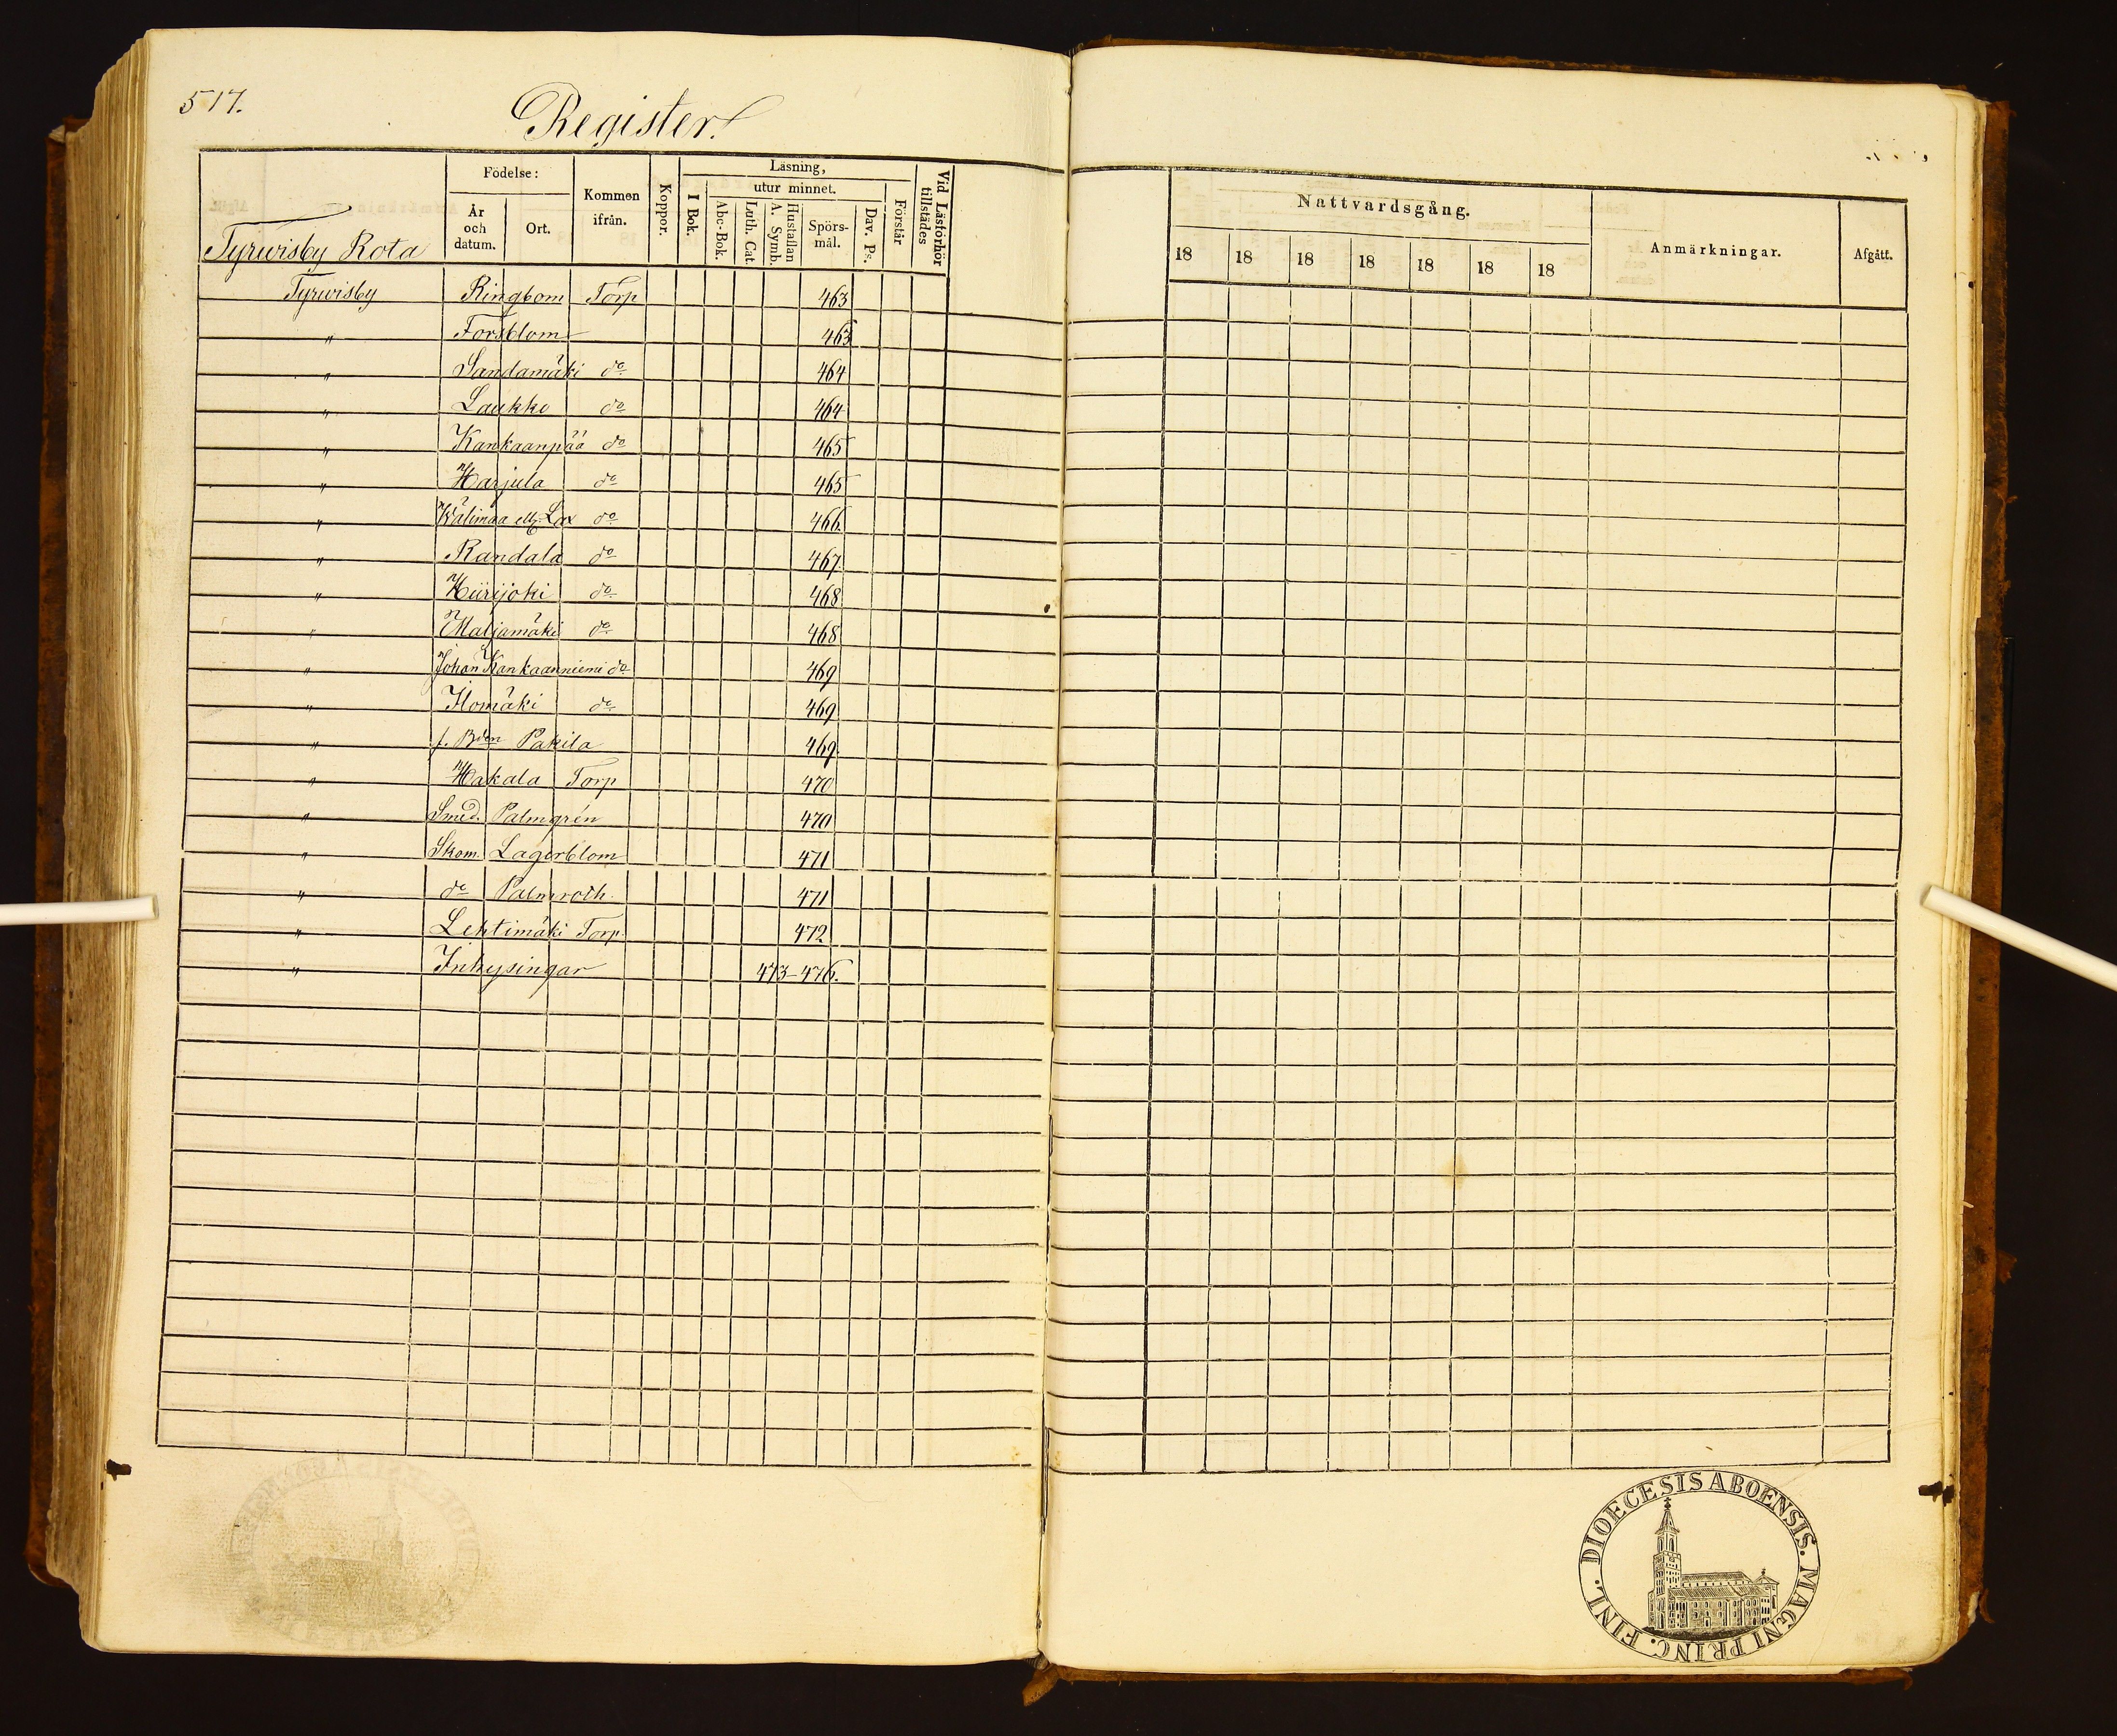 517.
Register.
Tyrwisby Rota
Födelse:
År och datum.
Ort.
Kommen ifrån.
Koppor.
Läsning,
utur minnet.
I Bok.
Abc-Bok.
Luth. Cat.
Hustaflan A. Symb.
Spörsmål.
Dav. Ps.
Förstår
Vid Läsförhör tillstädes
Nattvardsgång.
18 18 18 18 18 18 18
Anmärkningar.
Afgått.
Tyrwisby Ringbom Torp 463
" Forsblom 463
" Sandamäki do 464
" Laukko do 464
" Kankaanpää do 465
" Harjula do 465
" Wälimaa ell. Lax do 466.
" Randala do 467
" Hiirijoki do 468
" Maljamäki do 468
" Johan Kankaanniemi do 469
" Ilomäki do 469
" f. Bden Pakila 469.
" Hakala Torp 470
" Smed. Palmgrén 470
" Skom. Lagerblom 471
" do Palmroth. 471
" Lehtimäki Torp. 472
" Inhysingar 473-476.
FINL. DIOECESIS ABOENSIS. MAGNI PRINC.